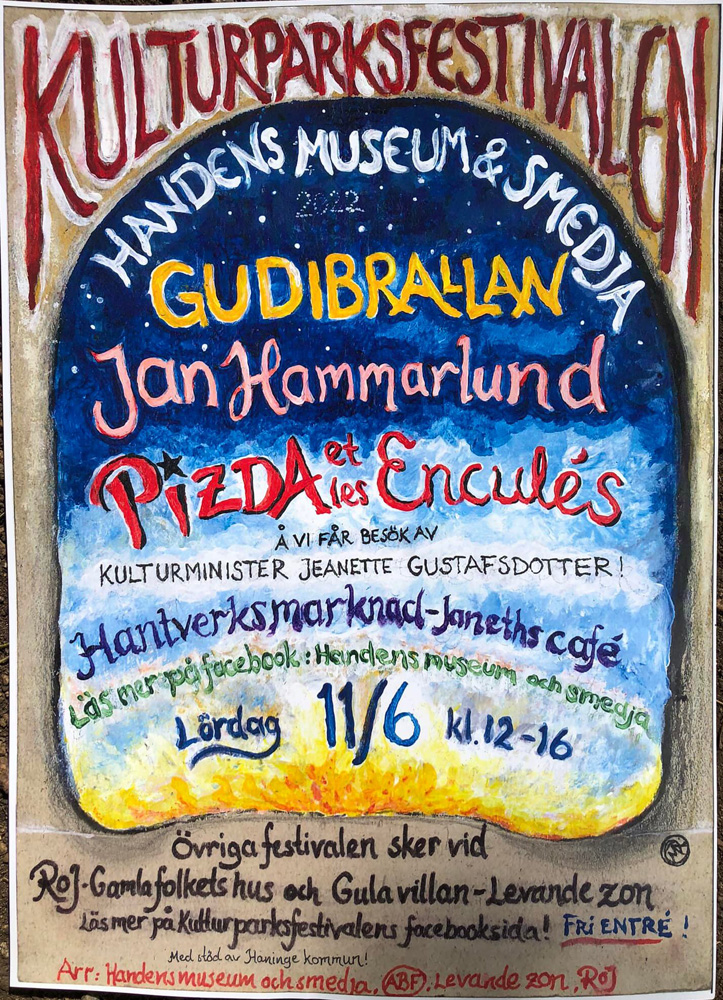 KULTURPARKSFESTIVALEN
HANDENS MUSEUM & SMEDJA
2022
GUDIBRALLAN
Jan Hammarlund
PiZDA et les Enculés
Å VI FÅR BESÖK AV
KULTURMINISTER JEANETTE GUSTAFSDOTTER!
Hantverksmarknad-Janeths café
Läs mer på facebook: Handens museum och smedja
Lördag 11/6 kl. 12-16
Övriga festivalen sker vid
RoJ-Gamla folkets hus och Gula villan-Levande zon
Läs mer på Kulturparksfestivalens facebooksida! FRI ENTRÉ!
Med stöd av Haninge kommun!
Arr: Handens museum och smedja, ABF, Levande zon, RoJ